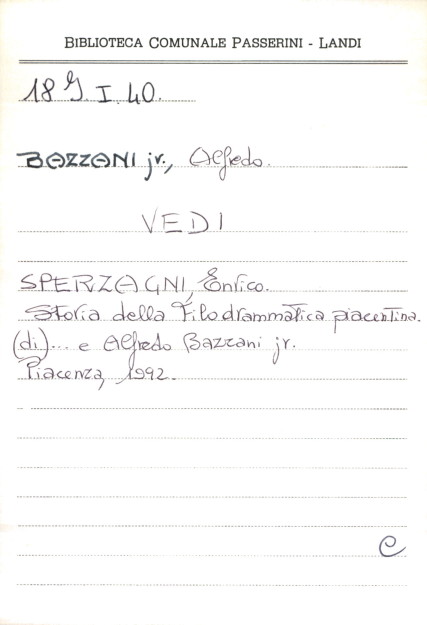 BIBLIOTECA COMUNALE PASSERINI - LANDI
18 G. I. 40.
BAZZANI jr., Alfredo.
VEDI
SPERZAGNI, Enrico.
Storia della Filodrammatica piacentina.
(di)... e Alfredo Bazzani jr.
Piacenza, 1992.
C